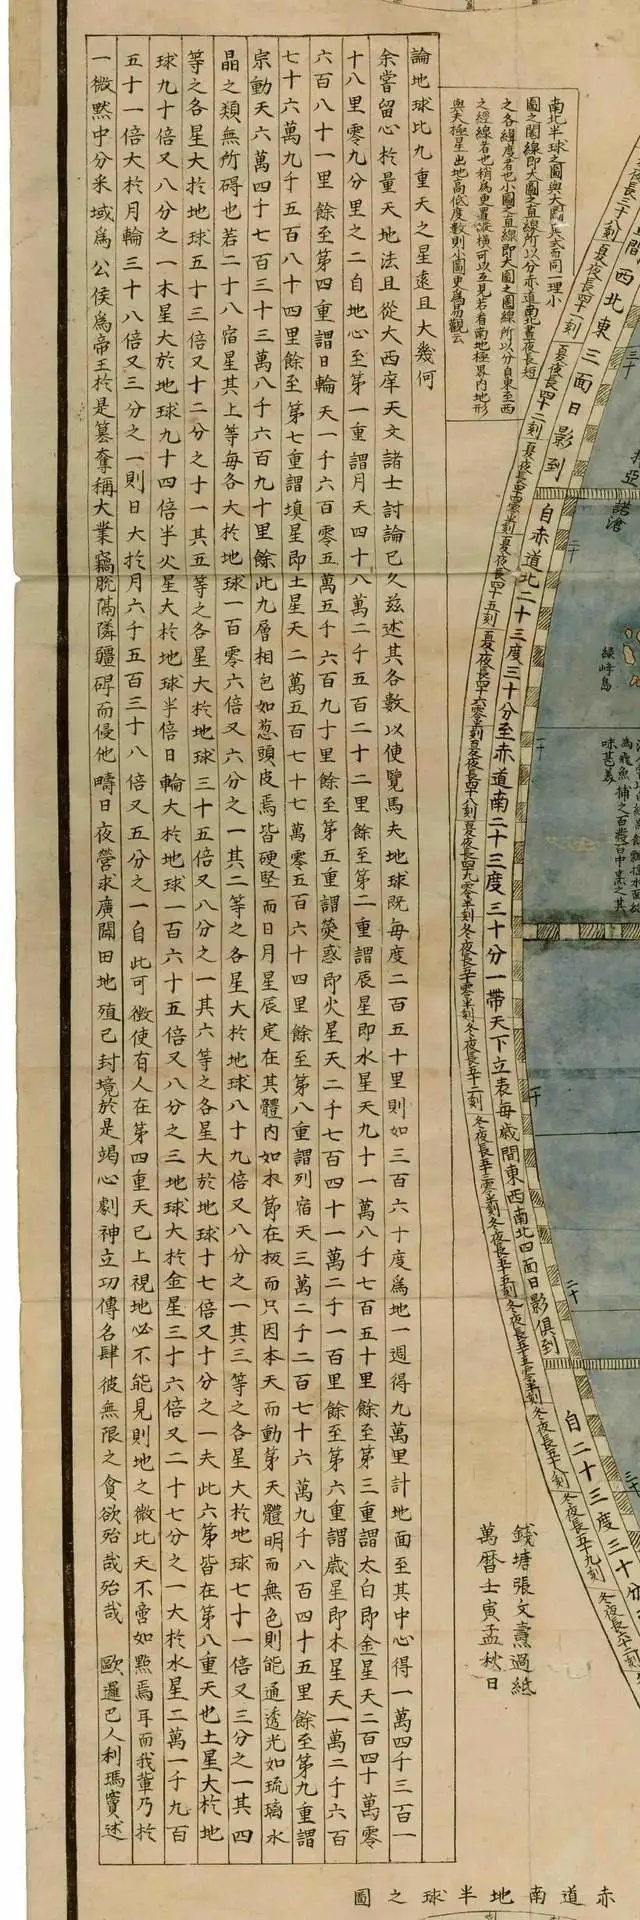 三十
二十
十
十
二十
三十
諾滄
綠峰島
為飛魚捕之百發百中素之其
味甚美
北東三面日影到
自赤道北二十三度三十分至赤道南二十三度三十分一帶天下立表每歲間東西南北四面日影俱到
自二十三度三十分
夏夜長四十一刻
夏夜長四十二刻
夏夜長四十五刻
南北半球之圖與大圖異式而同一理小
圖之圈線即大圖之直線所以分赤道南北晝夜長短
之各緯度者也小圖之直線即大圖之圈線所以分自東至西
之經線者也稍為更置縱橫可以互見若看南地極界內地形
與夫極星出地高低度數則小圖更為易觀云
錢塘張文燾過紙
萬曆壬寅孟秋日
論地球比九重天之星遠且大幾何
余嘗留心於量天地法且從大西庠天文諸士討論已久茲述其各數以便覽焉夫地球既每度二百五十里則如三百六十度為地一週得九萬里計地面至其中心得一萬四千三百一
十八里零九分里之二自地心至第一重謂月天四十八萬二千五百二十二里餘至第二重謂辰星即水星天九十一萬八千七百五十里餘至第三重謂太白即金星天二百四十萬零
六百八十一里餘至第四重謂日輪天一千六百零五萬五千六百九十里餘至第五重謂熒惑即火星天二千七百四十一萬二千一百里餘至第六重謂歲星即木星天一萬二千六百
七十六萬九千五百八十四里餘至第七重謂填星即土星天二萬五百七十七萬零五百六十四里餘至第八重謂列宿天三萬二千二百七十六萬九千八百四十五里餘至第九重謂
宗動天六萬四千七百三十三萬八千六百九十里餘此九層相包如葱頭皮焉皆硬堅而日月星辰定在其體內如木節在板而只因本天而動第天體明而無色則能通透光如琉璃水
晶之類無所碍也若二十八宿星其上等每各大於地球一百零六倍又六分之一其二等之各星大於地球八十九倍又八分之一其三等之各星大於地球七十一倍又三分之一其四
等之各星大於地球五十三倍又十二分之十一其五等之各星大於地球三十五倍又八分之一其六等之各星大於地球十七倍又十分之一夫此六第皆在第八重天也土星大於地
球九十倍又八分之一木星大於地球九十四倍半火星大於地球半倍日輪大於地球一百六十五倍又八分之三地球大於金星三十六倍又二十七分之一大於水星二萬一千九百
五十一倍大於月輪三十八倍又三分之一則日大於月六千五百三十八倍又五分之一自此可徵使有人在第四重天已上視地必不能見則地之微比天不啻如點焉耳而我輩乃於
一微點中分采域為公侯為帝王於是篡奪稱大業竊脫隔隣疆碑而侵他疇日夜營求廣闢田地殖己封境於是竭心劇神立功傳名肆彼無限之貪欲殆哉殆哉 歐邏巴人利瑪竇述
赤道南地半球之圖